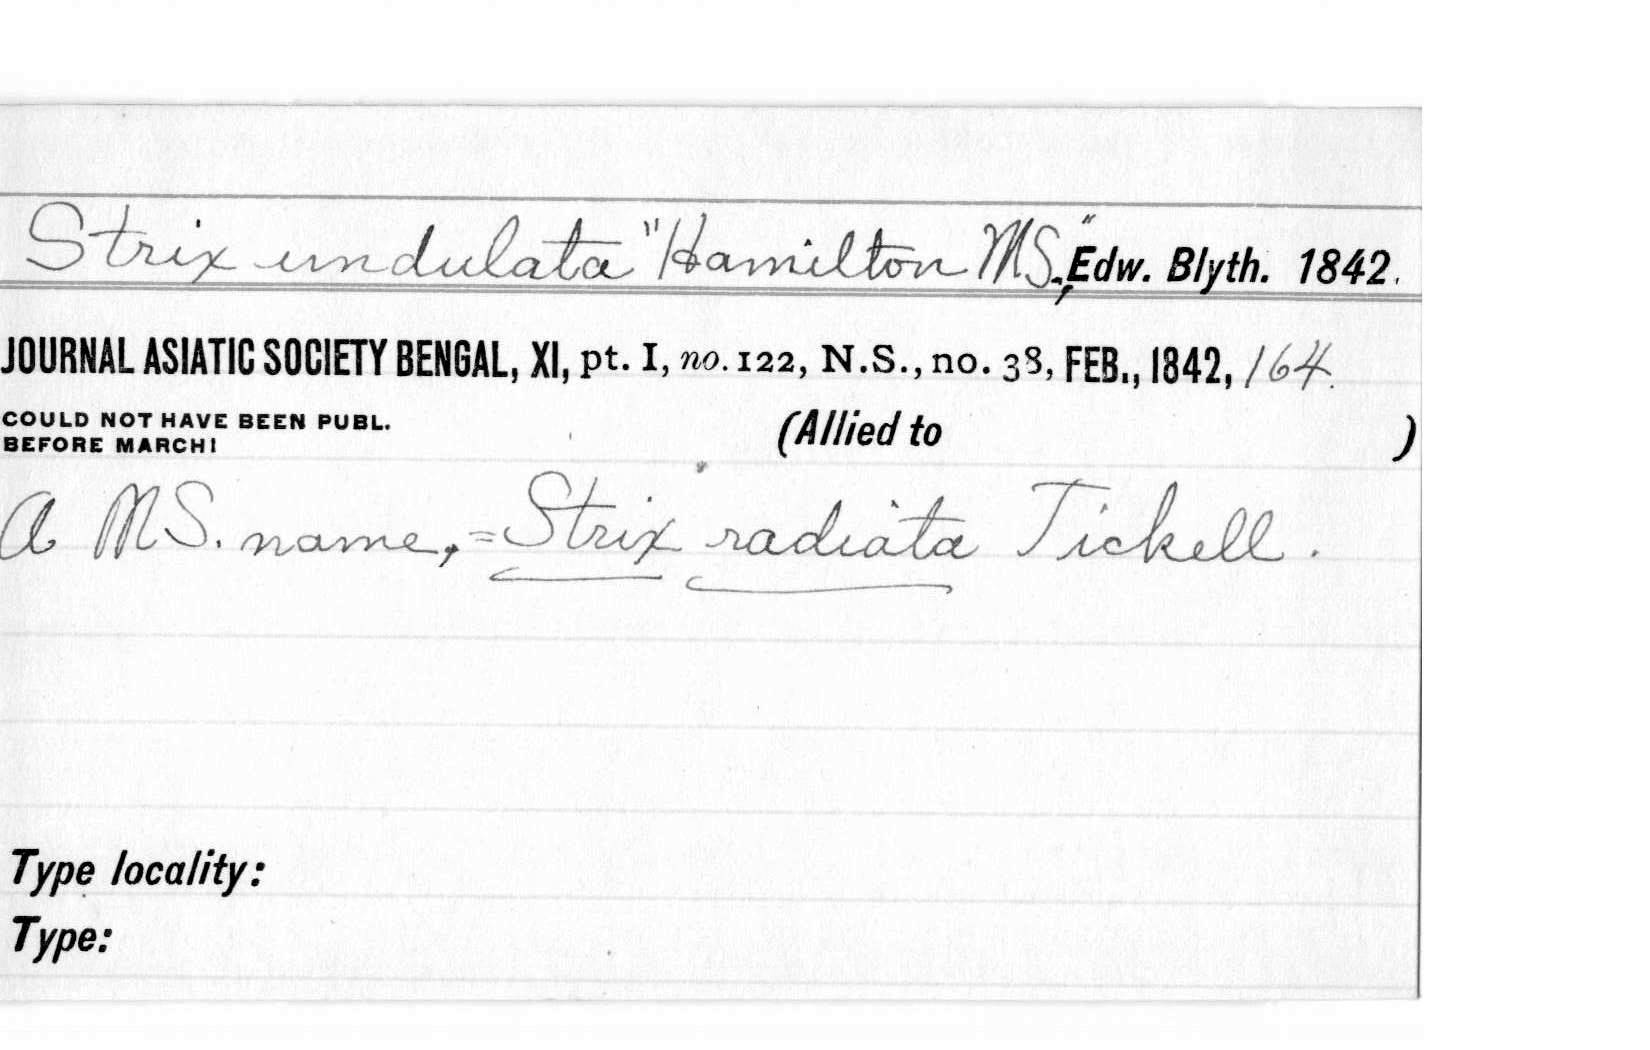 Strix undulata "Hamilton MS.," Edw. Blyth. 1842.
JOURNAL ASIATIC SOCIETY BENGAL, XI, pt. I, no. 122, N.S., no. 38, FEB., 1842, 164.
COULD NOT HAVE BEEN PUBL.
BEFORE MARCH!
(Allied to )
A MS. name, = Strix radiata Tickell.
Type locality:
Type: